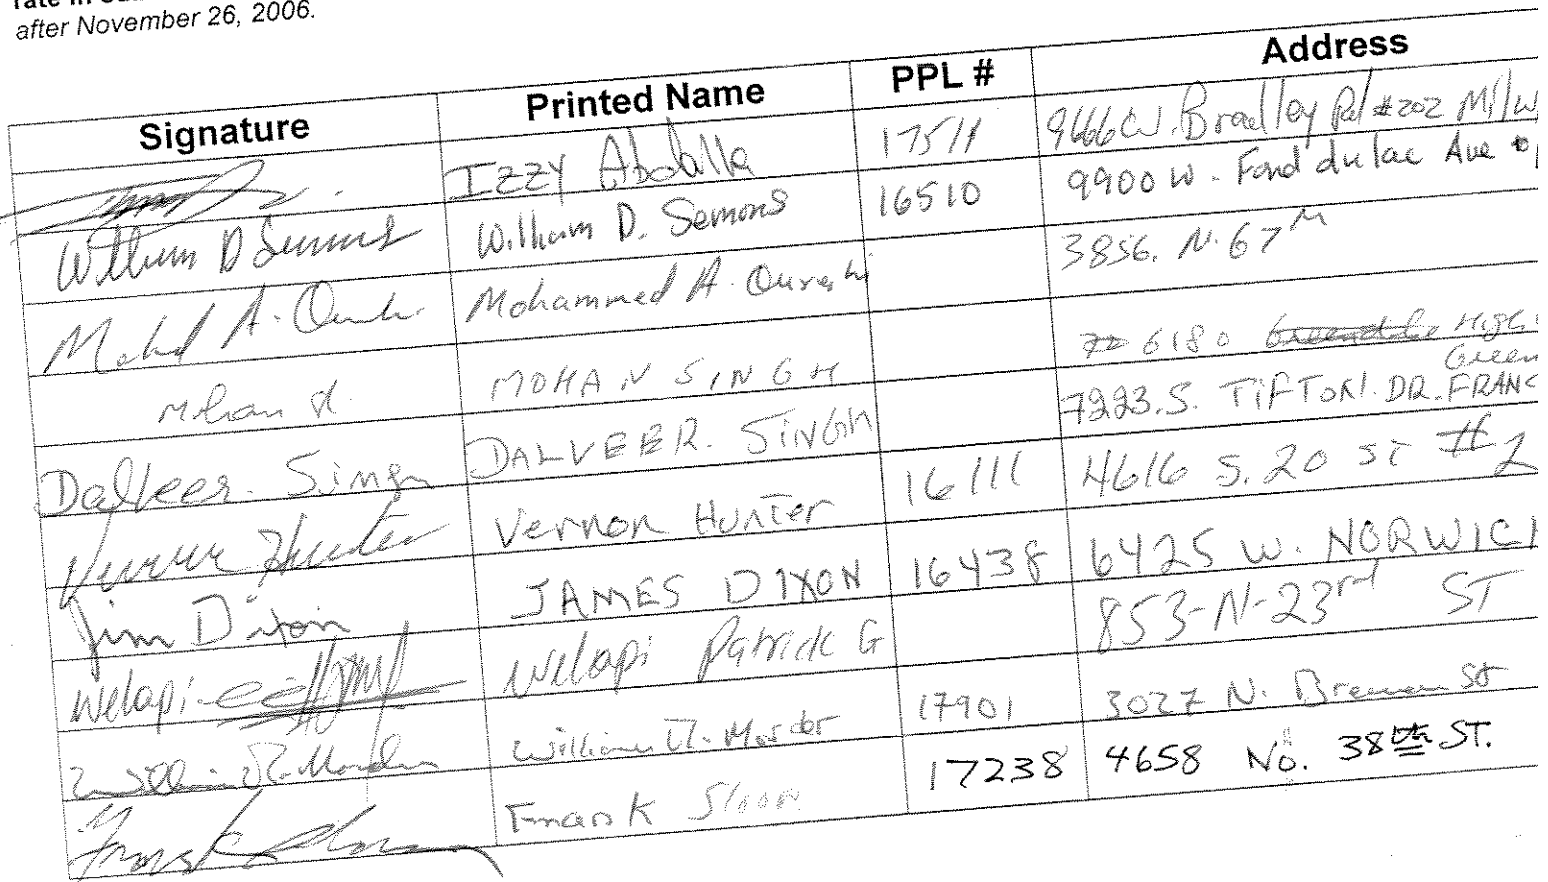 after November 26, 2006.
Signature Printed Name PPL # Address
Izzy Abdalla 17511 9666 W. Bradley Rd #202 Milw
William D Semons William D. Semons 16510 9900 W. Fond du lac Ave
Mohd A. Mohammed A. Qureshi 3856. N. 67
MOHAN SINGH 6180 High
Green
Dalveer. Singh DALVEER. SINGH 7223. S. TIFTON DR. FRANC
Vernon Hunter Vernon Hunter 16111 4616 S. 20 ST #2
Jim Dixon JAMES DIXON 16438 6425 W. NORWICH
Welapi Welapi Patrick G 853-N-23rd ST
William 17901 3027 N. Bremen St
Frank Frank Sloan 17238 4658 No. 38th ST.